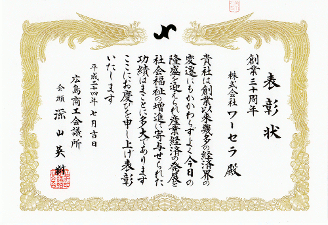 表彰状
創業三十周年
株式会社 ワーセラ 殿
貴社は創業以来幾多の経済界の
変遷にもかかわらずよく今日の
隆盛を迎えられ産業経済の発展と
社会福祉の増進に寄与せられた
功績はまことに多大であります
ここにお慶びを申し上げ表彰
いたします
平成二十四年七月吉日
広島商工会議所
会頭 深山英樹